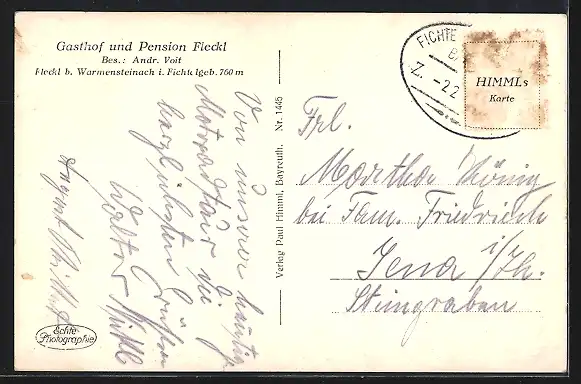 Gasthof und Pension Fleckl
Bes.: Andr. Voit
Fleckl b. Warmensteinach i. Fichtelgeb. 760 m
Von unserer heutigen
Motorradtour die
herzlichsten Grüße
Walter
August
Echte
Photographie
Verlag Paul Himml, Bayreuth. Nr. 1445
FICHTE
Z. - 22
HIMMLs
Karte
Frl.
Martha König
bei Fam. Friedrich
Jena i/Th.
Steingraben